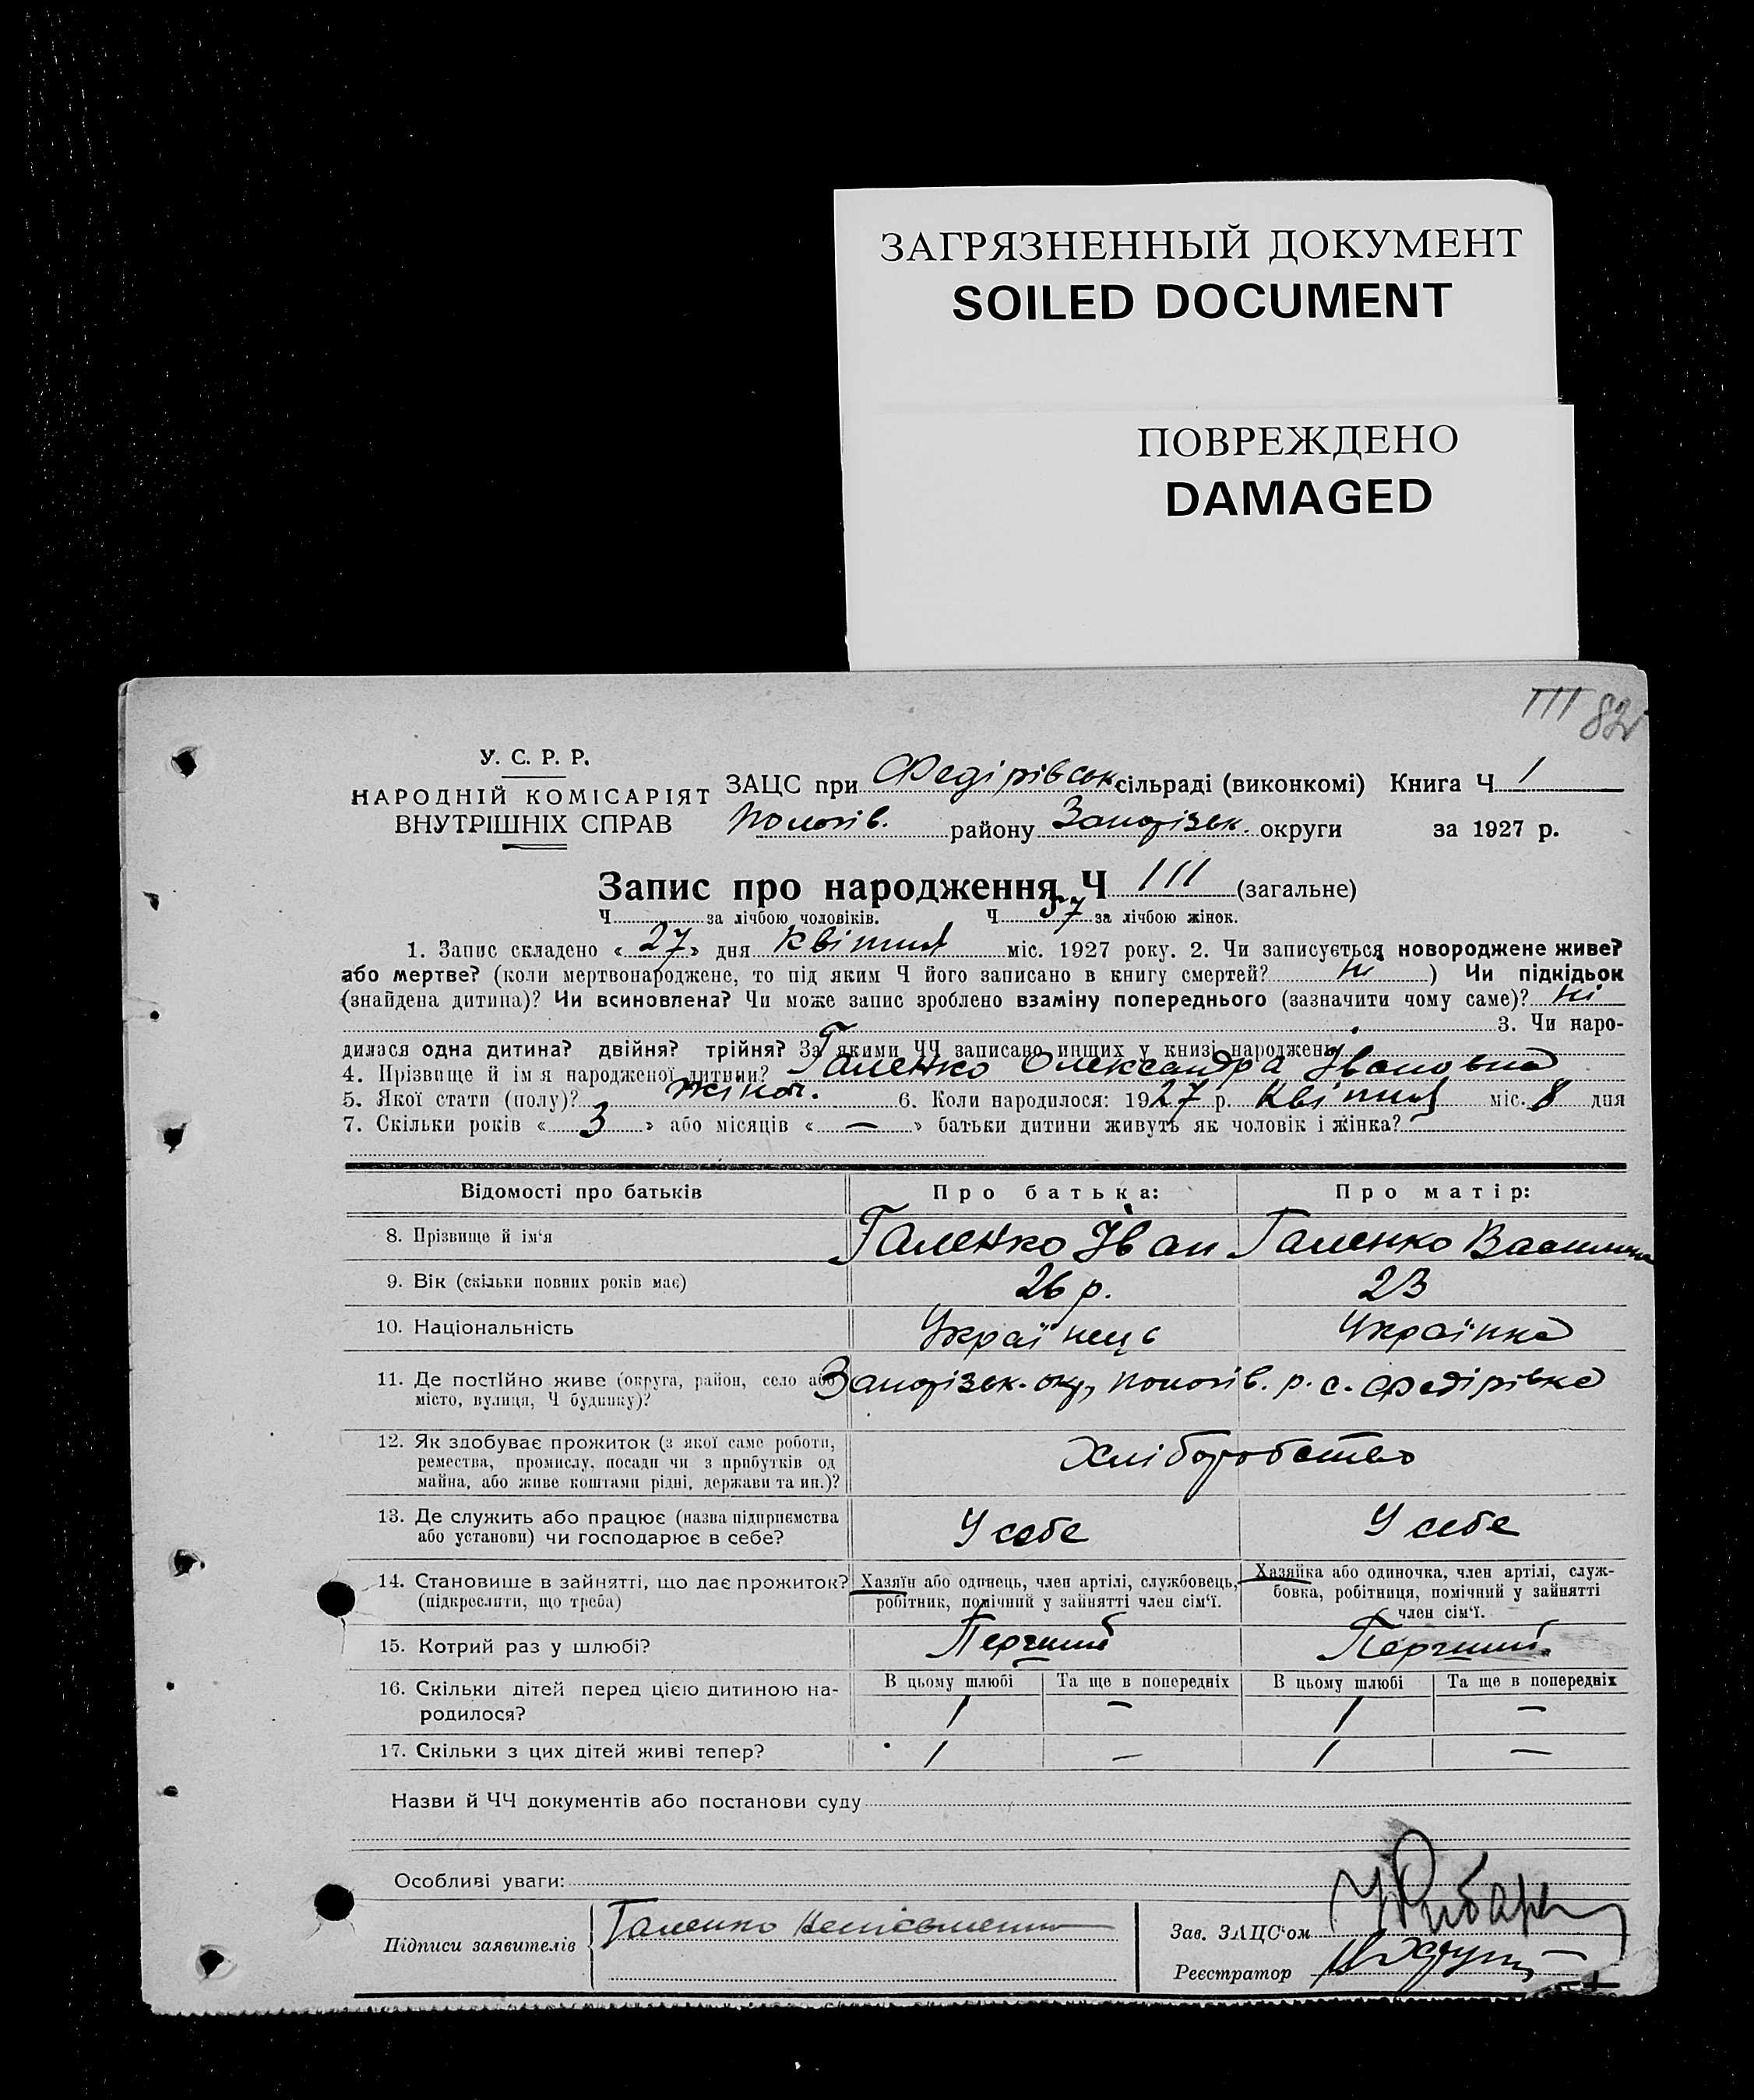 ЗАГРЯЗНЕННЫЙ ДОКУМЕНТ
SOILED DOCUMENT
ПОВРЕЖДЕНО
DAMAGED
111 82
У. С. Р. Р.
НАРОДНІЙ КОМІСАРІЯТ
ВНУТРІШНІХ СПРАВ
ЗАЦС при Федірівськ сільраді (виконкомі) Книга Ч 1
Пологів. району Запорізьк. округи за 1927 р.
Запис про народження Ч 111 (загальне)
Ч за лічбою чоловіків. Ч 57 за лічбою жінок.
1. Запис складено « 27 » дня квітня міс. 1927 року. 2. Чи записується новороджене живе?
або мертве? (коли мертвонароджене, то під яким Ч його записано в книгу смертей? ні ) Чи підкідьок
(знайдена дитина)? Чи всиновлена? Чи може запис зроблено взаміну попереднього (зазначити чому саме)? ні
3. Чи наро-
дилася одна дитина? двійня? трійня? За якими ЧЧ записано инших у книзі народжень
4. Прізвище й ім я народженої дитини? Галенко Олександра Івановна
5. Якої стати (полу)? жіноч. 6. Коли народилося: 1927 р. Квітня міс. 8 дня
7. Скільки років « 3 » або місяців « — » батьки дитини живуть як чоловік і жінка?
Відомості про батьків Про батька: Про матір:
8. Прізвище й ім‘я Галенко Іван Галенко Василина
9. Вік (скільки повних років має) 26 р. 23
10. Національність Українець Українка
11. Де постійно живе (округа, район, село або Запорізьк. окр, пологів. р. с. Федірівка
місто, вулиця, Ч будинку)?
12. Як здобуває прожиток (з якої саме роботи, Хліборобство
ремества, промислу, посади чи з прибутків од
майна, або живе коштами рідні, держави та ин.)?
13. Де служить або працює (назва підприємства У себе У себе
або установи) чи господарює в себе?
14. Становище в зайнятті, що дає прожиток? Хазяїн або одинець, член артілі, службовець, Хазяйка або одиночка, член артілі, служ-
(підкреслити, що треба) робітник, помічний у зайнятті член сім‘ї. бовка, робітниця, помічний у зайнятті
член сім‘ї.
15. Котрий раз у шлюбі? Перший Перший
16. Скільки дітей перед цією дитиною на- В цьому шлюбі Та ще в попередніх В цьому шлюбі Та ще в попередніх
родилося? 1 — 1 —
17. Скільки з цих дітей живі тепер? 1 — 1 —
Назви й ЧЧ документів або постанови суду
Особливі уваги:
Підписи заявителів Галенко
Зав. ЗАЦС‘ом
Реєстратор